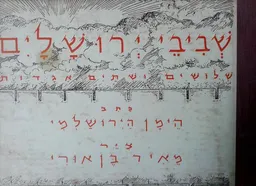 שְׁבִיבֵי יְרוּשָׁלַיִם
שלושים ושתים אגדות
כתב
הֵימָן הַיְרוּשַׁלְמִי
ציר
מֵאִיר בֶּן אוּרִי